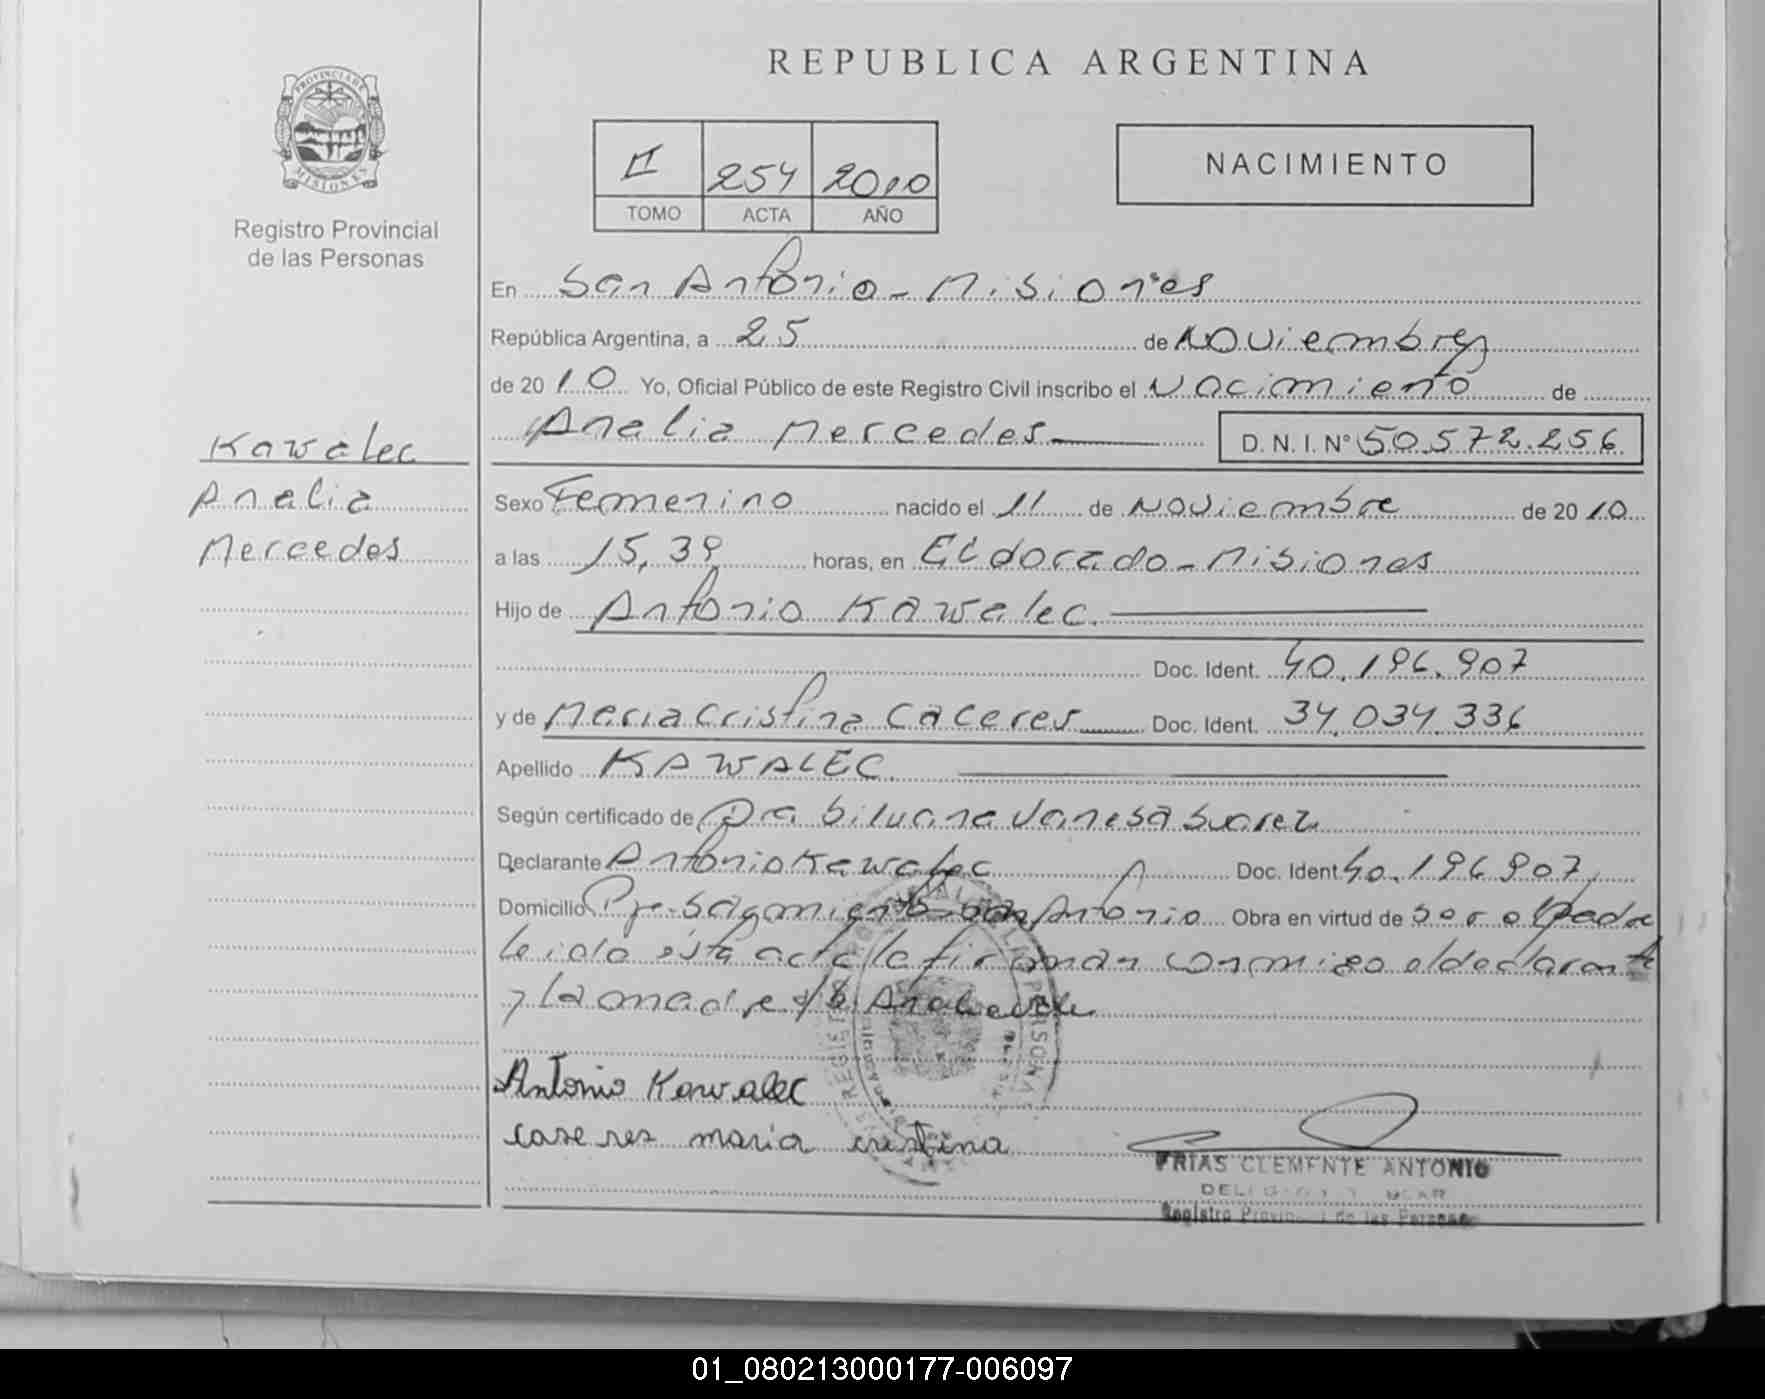 REPUBLICA ARGENTINA
PROVINCIA DE MISIONES
Registro Provincial
de las Personas
II 254 2010
TOMO ACTA AÑO
NACIMIENTO
En San Antonio - Misiones
República Argentina, a 25 de Noviembre
de 2010 Yo, Oficial Público de este Registro Civil inscribo el Nacimiento de
Analia Mercedes D.N.I. Nº 50.572.256
Kawalec
Analia
Mercedes
Sexo Femenino nacido el 11 de Noviembre de 2010
a las 15,39 horas, en Eldorado - Misiones
Hijo de Antonio Kawalec.
Doc. Ident. 40.196.907
y de Maria Cristina Caceres Doc. Ident. 34.034.336
Apellido KAWALEC
Según certificado de Dra Silvana Vanesa Suarez
Declarante Antonio Kawalec Doc. Ident 40.196.907
Domicilio San Antonio Obra en virtud de ser el Padre
leida esta acta la firman conmigo el declarante
y la madre
Antonio Kawalec
caseres maria cristina
FRIAS CLEMENTE ANTONIO
Registro Provincial de las Personas
01_080213000177-006097